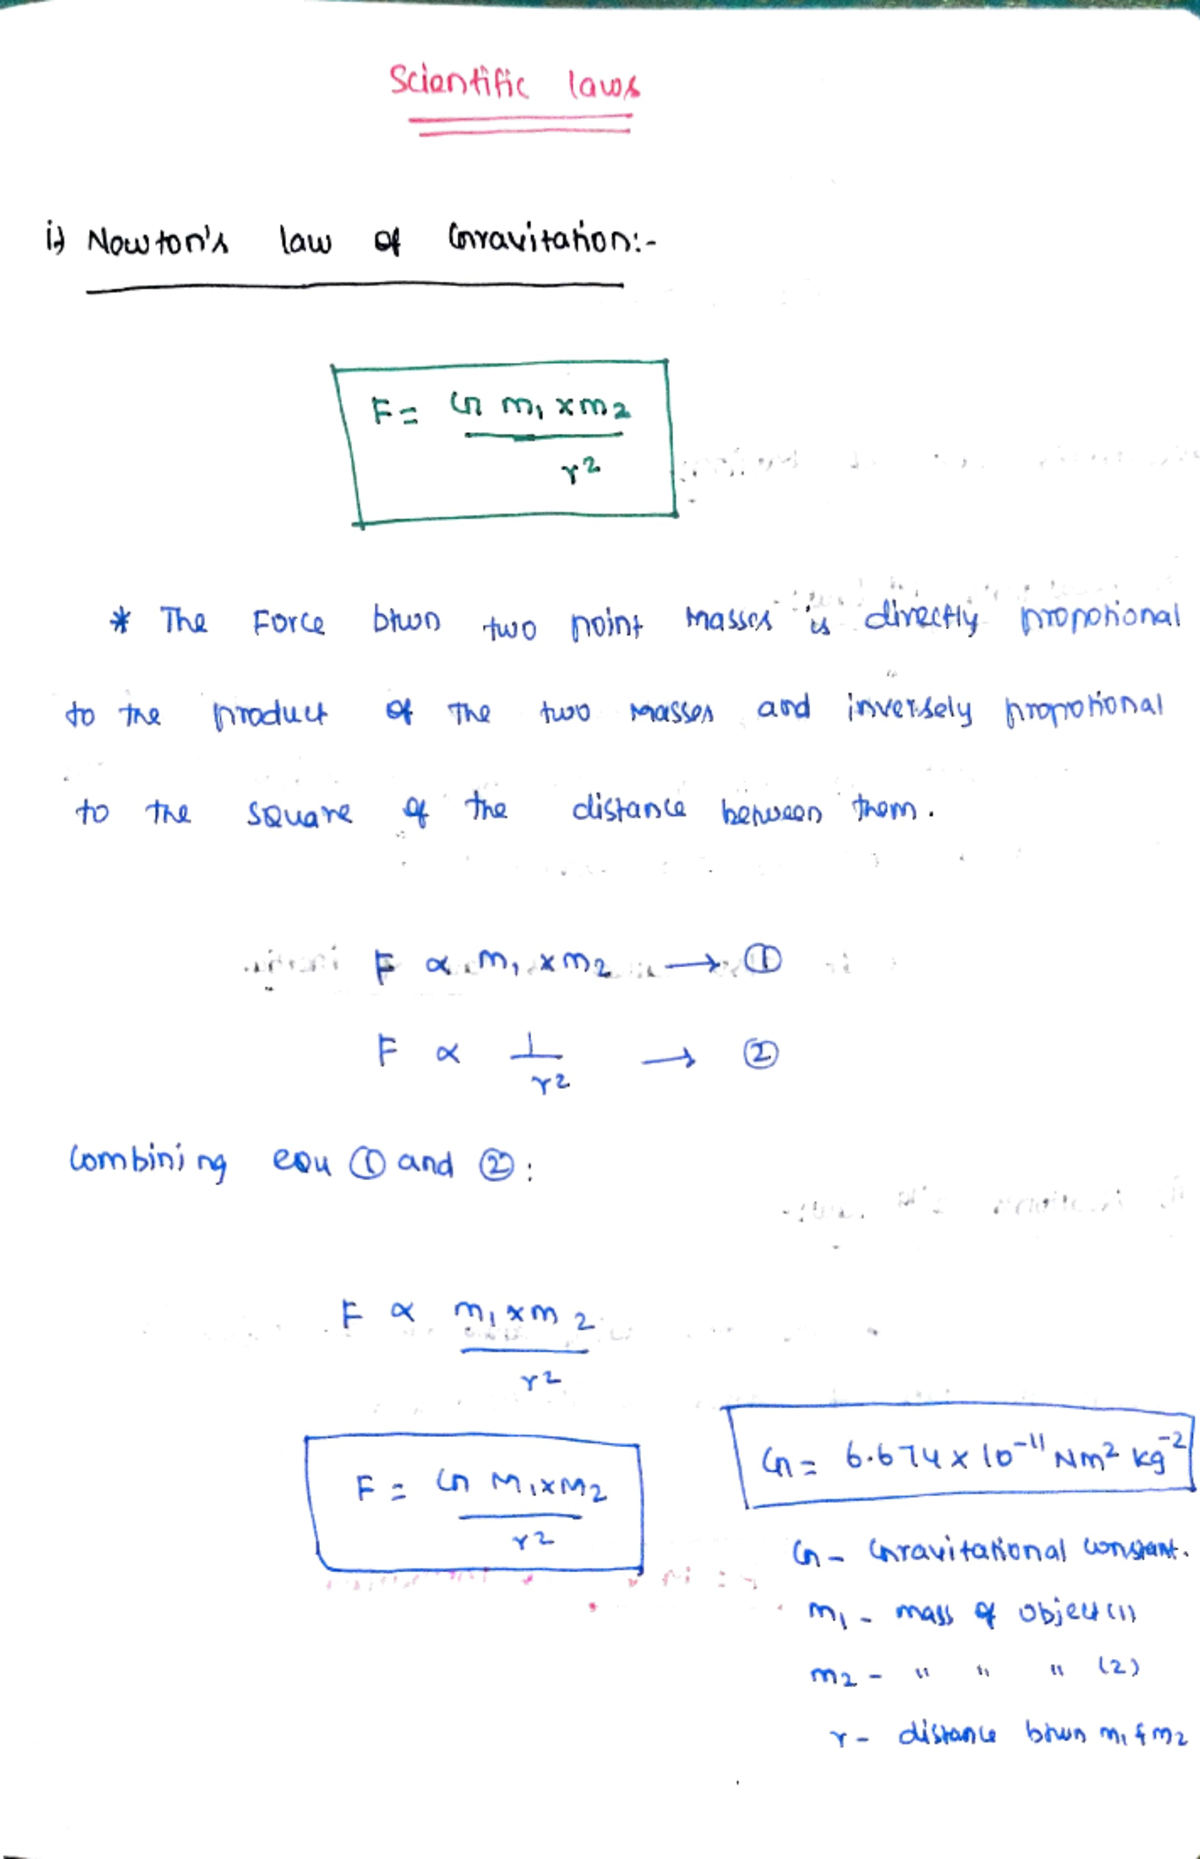 Scientific laws
i) Newton's law of Gravitation:-
F = G m₁ × m₂
r²
* The Force btwn two point masses is directly propotional
to the product of the two masses and inversely propotional
to the square of the distance between them.
F ∝ m₁ × m₂ → ①
F ∝ 1/r² → ②
Combining equ ① and ②:
F ∝ m₁ × m₂
r²
F = G M₁×M₂
r²
G = 6.674 × 10⁻¹¹ Nm² kg⁻²
G - Gravitational constant.
m₁ - mass of object (1)
m₂ - " " " (2)
r - distance btwn m₁ & m₂